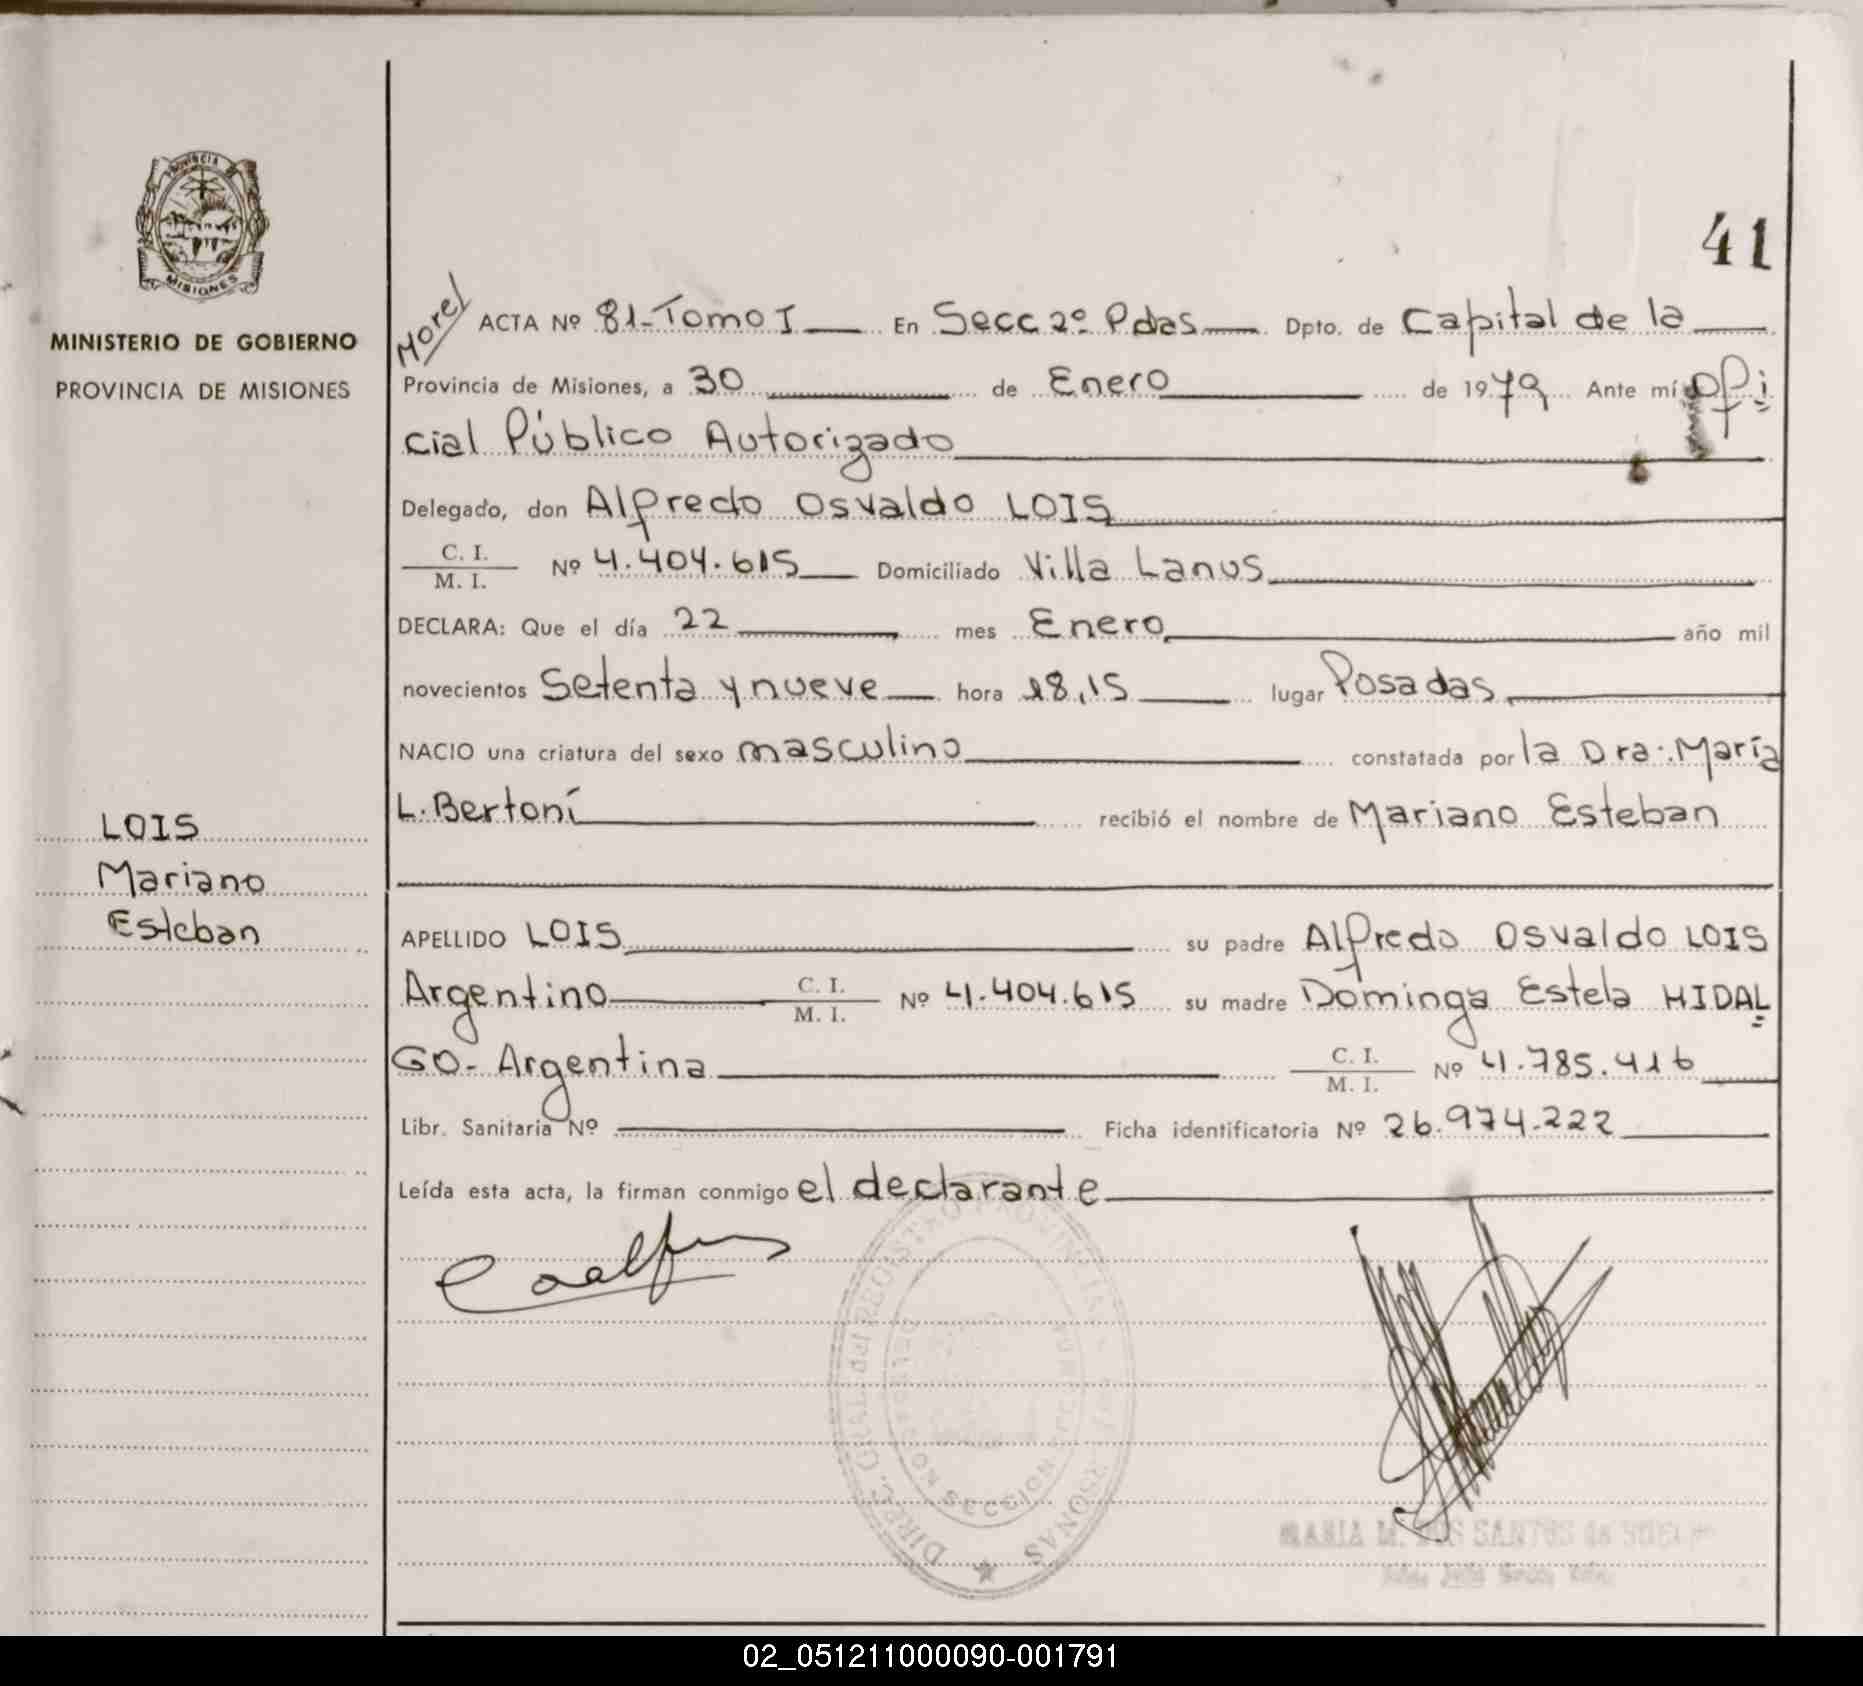 41
PROVINCIA
MISIONES
MINISTERIO DE GOBIERNO
PROVINCIA DE MISIONES
LOIS
Mariano
Esteban
Morel
ACTA Nº 81-Tomo I En Secc 2º Pdas Dpto. de Capital de la
Provincia de Misiones, a 30 de Enero de 1979 Ante mí Ofi
cial Público Autorizado
Delegado, don Alfredo Osvaldo LOIS
C. I.
M. I. Nº 4.404.615 Domiciliado Villa Lanus
DECLARA: Que el día 22 mes Enero año mil
novecientos Setenta y nueve hora 18,15 lugar Posadas
NACIO una criatura del sexo masculino constatada por la Dra. María
L. Bertoni recibió el nombre de Mariano Esteban
APELLIDO LOIS su padre Alfredo Osvaldo LOIS
Argentino C. I.
M. I. Nº 4.404.615 su madre Dominga Estela HIDAL
GO- Argentina C. I.
M. I. Nº 4.785.416
Libr. Sanitaria Nº Ficha identificatoria Nº 26.974.222
Leída esta acta, la firman conmigo el declarante
DIREC. GRAL. del REGISTRO PROVINCIAL
SECCION
MARIA M. DOS SANTOS de
02_051211000090-001791